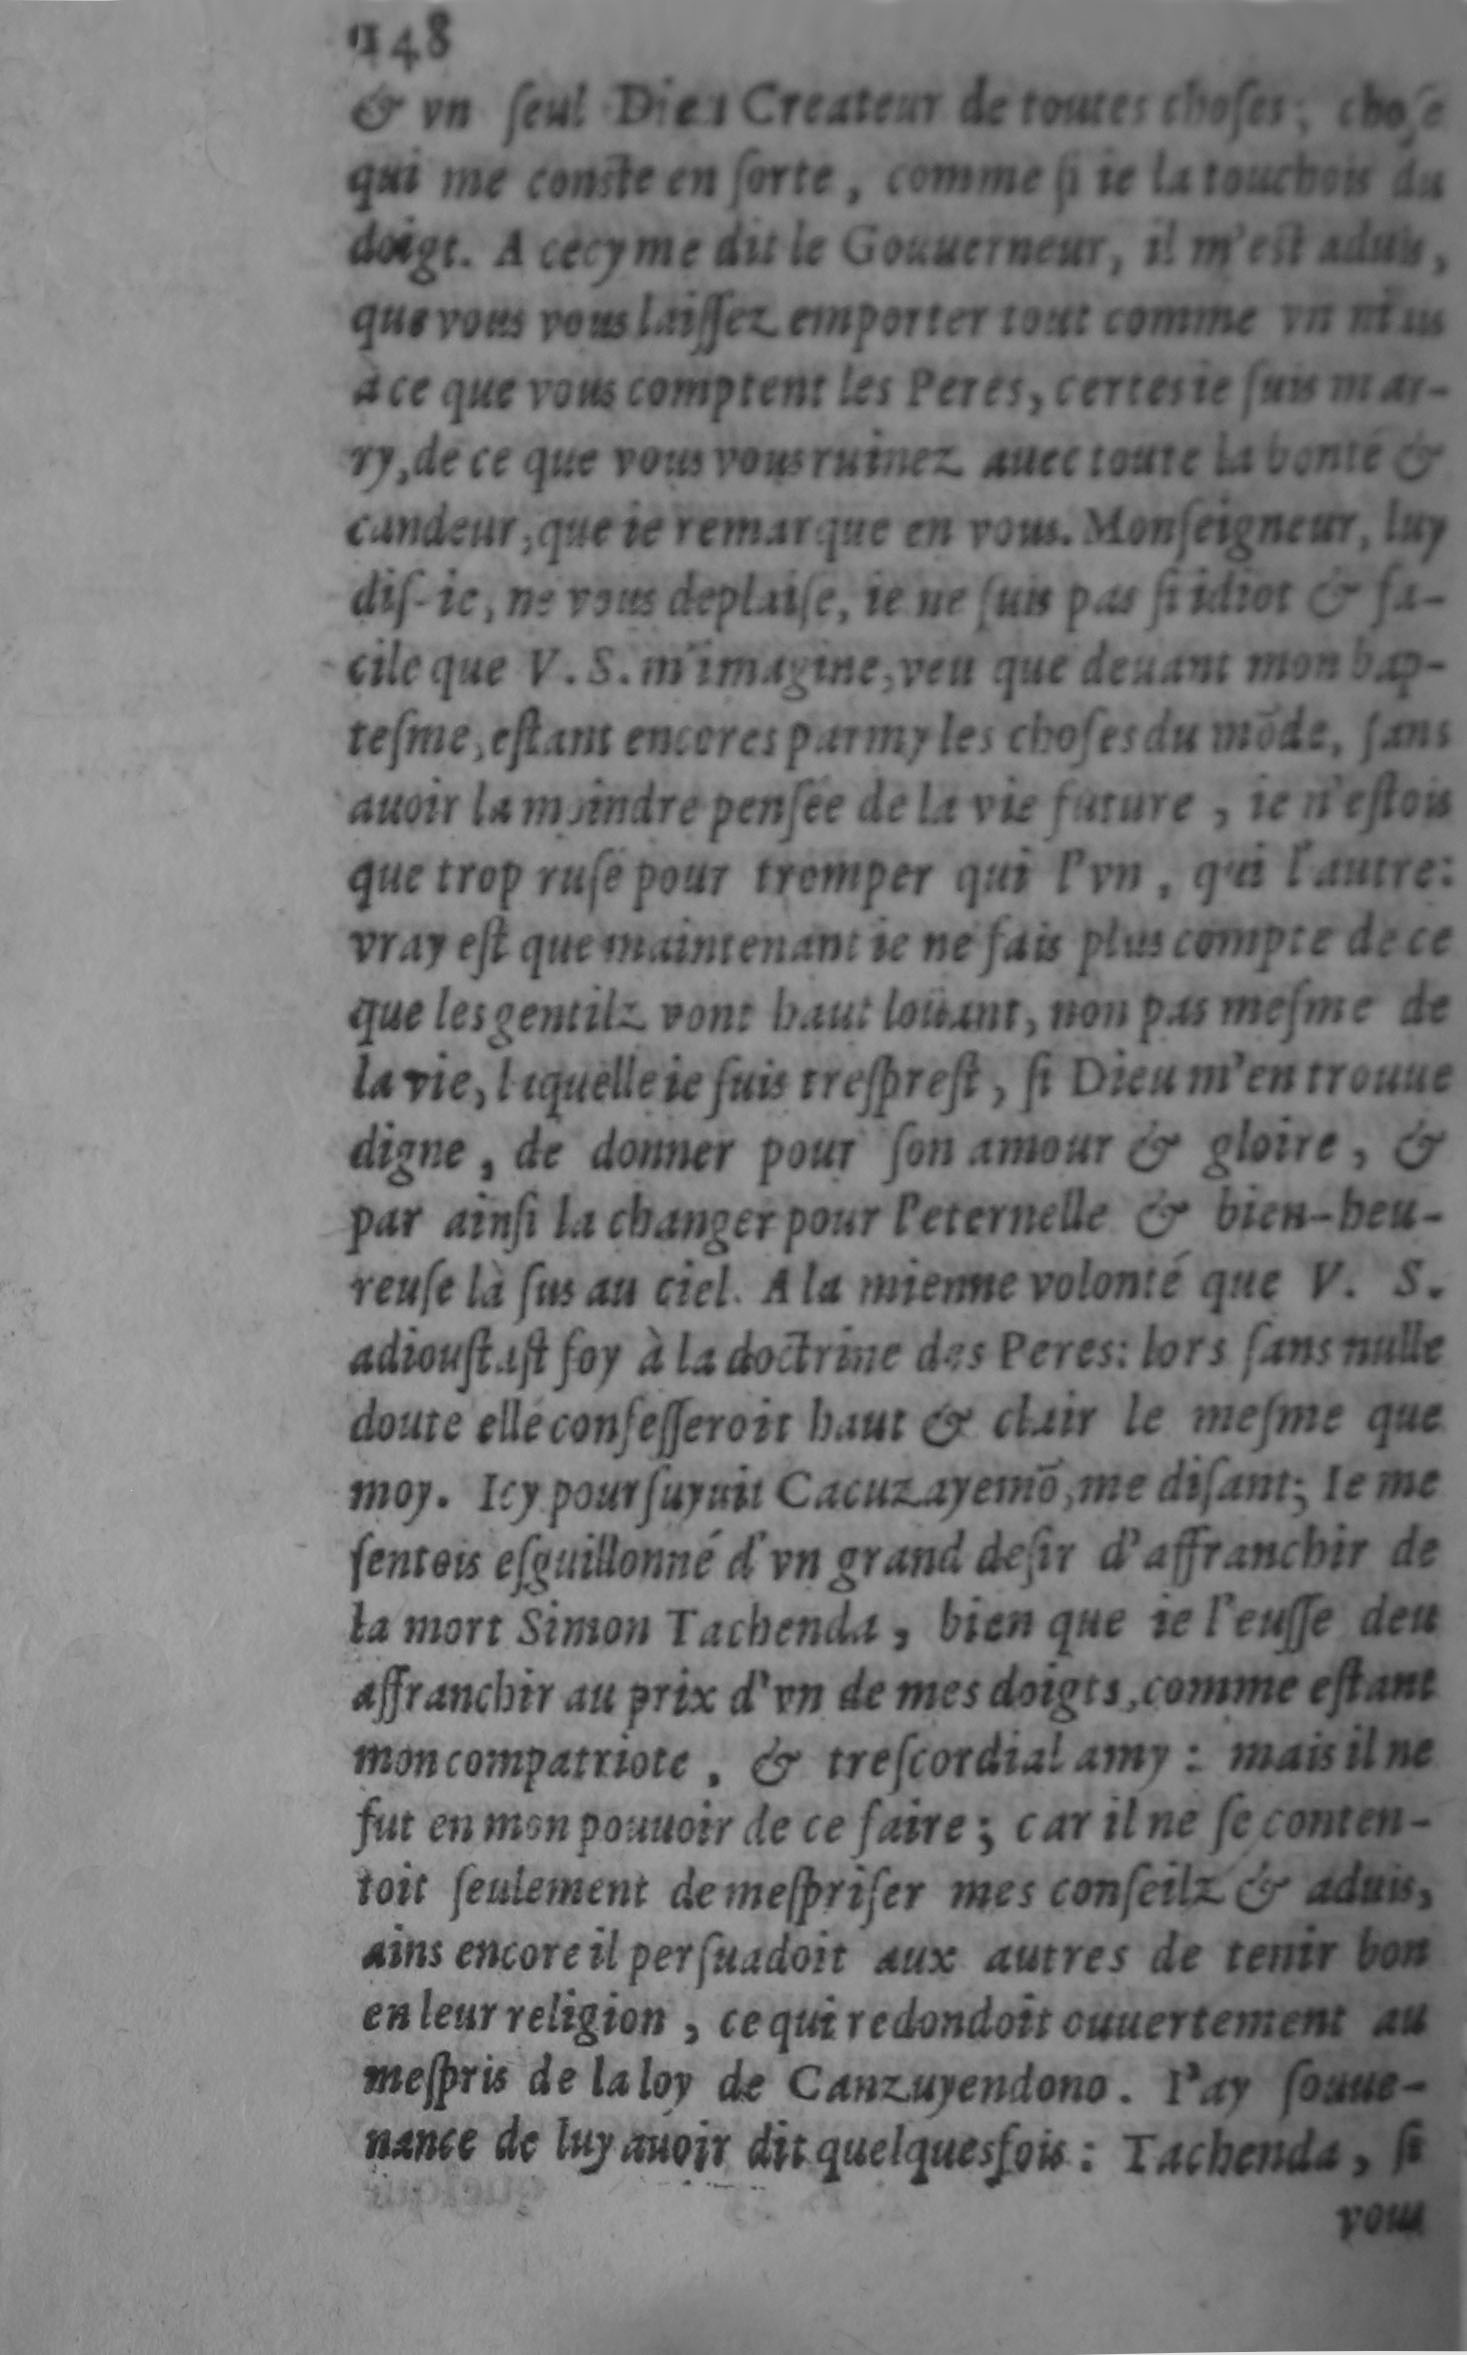 148
& vn ſeul Dieu Createur de toutes choſes; choſe
qui me conſte en ſorte, comme ſi ie la touchois du
doigt. A cecy me dit le Gouuerneur, il m'eſt aduis,
que vous vous laiſſez emporter tout comme vn niais
à ce que vous comptent les Peres, certes ie ſuis mar-
ry, de ce que vous vous ruinez auec toute la bonté &
candeur, que ie remarque en vous. Monſeigneur, luy
diſ-ie, ne vous deplaiſe, ie ne ſuis pas ſi idiot & fa-
cile que V. S. m'imagine, veu que deuant mon bap-
teſme, eſtant encores parmy les choſes du mōde, ſans
auoir la moindre penſée de la vie future, ie n'eſtois
que trop ruſé pour tromper qui l'vn, qui l'autre:
vray eſt que maintenant ie ne fais plus compte de ce
que les gentilz vont haut loüant, non pas meſme de
la vie, laquelle ie ſuis treſpreſt, ſi Dieu m'en trouue
digne, de donner pour ſon amour & gloire, &
par ainſi la changer pour l'eternelle & bien-heu-
reuſe là ſus au ciel. A la mienne volonté que V. S.
adiouſtaſt foy à la doctrine des Peres: lors ſans nulle
doute elle confeſſeroit haut & clair le meſme que
moy. Icy pourſuyuit Cacuzayemō, me diſant; Ie me
ſentois eſguillonné d'vn grand deſir d'affranchir de
la mort Simon Tachenda, bien que ie l'euſſe deu
affranchir au prix d'vn de mes doigts, comme eſtant
mon compatriote, & treſcordial amy: mais il ne
fut en mon pouuoir de ce faire; car il ne ſe conten-
toit ſeulement de meſpriſer mes conſeilz & aduis,
ains encore il perſuadoit aux autres de tenir bon
en leur religion, ce qui redondoit ouuertement au
meſpris de la loy de Canzuyendono. I'ay ſouue-
nance de luy auoir dit quelquesfois: Tachenda, ſi
vous